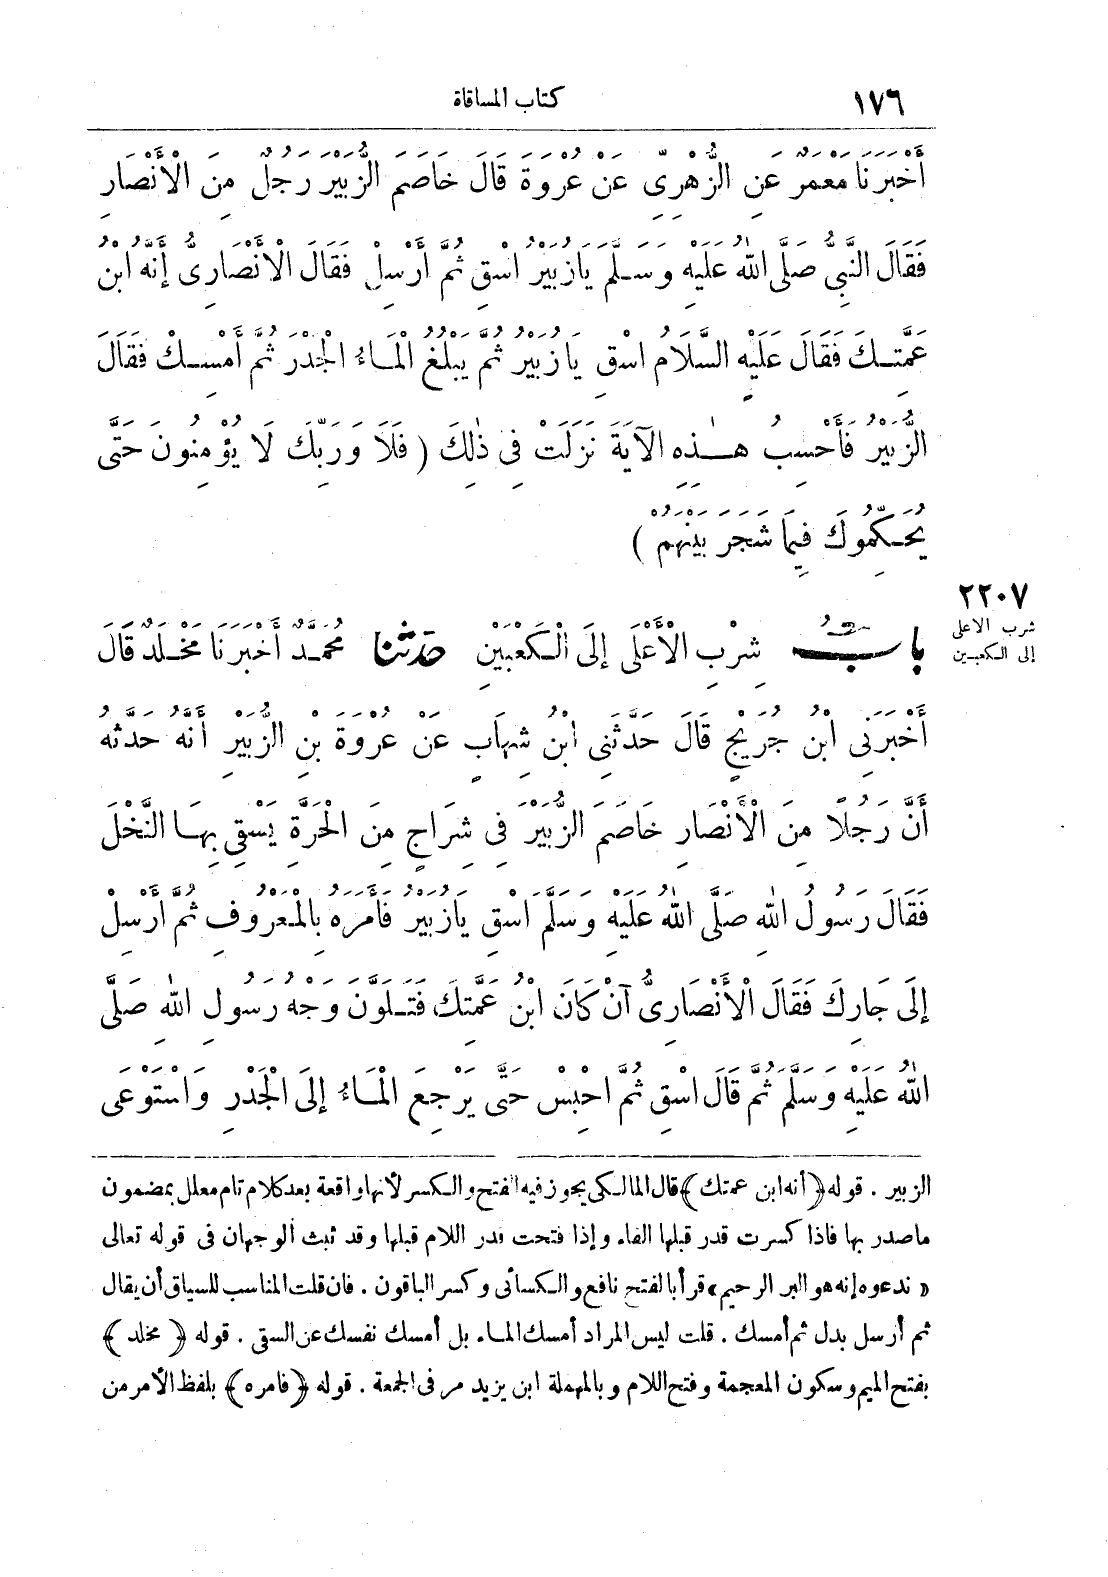 ١٧٦
كتاب المساقاة
أَخْبَرَنَا مَعْمَرٌ عَنِ الزُّهْرِيِّ عَنْ عُرْوَةَ قَالَ خَاصَمَ الزُّبَيْرَ رَجُلٌ مِنَ الْأَنْصَارِ
فَقَالَ النَّبِيُّ صَلَّى اللهُ عَلَيْهِ وَسَلَّمَ يَازُبَيْرُ اسْقِ ثُمَّ أَرْسِلْ فَقَالَ الْأَنْصَارِىُّ إِنَّهُ ابْنُ
عَمَّتِكَ فَقَالَ عَلَيْهِ السَّلَامُ اسْقِ يَازُبَيْرُ ثُمَّ يَبْلُغُ الْمَاءُ الْجَدْرَ ثُمَّ أَمْسِكْ فَقَالَ
الزُّبَيْرُ فَأَحْسِبُ هٰذِهِ الآيَةَ نَزَلَتْ فِى ذٰلِكَ ( فَلَا وَرَبِّكَ لَا يُؤْمِنُونَ حَتَّى
يُحَكِّمُوكَ فِيمَا شَجَرَ بَيْنَهُمْ )
٢٢٠٧
شرب الاعلى
إلى الكعبين
بابُ شِرْبِ الْأَعْلَى إِلَى الْكَعْبَيْنِ حدثنا مُحَمَّدٌ أَخْبَرَنَا مَخْلَدٌ قَالَ
أَخْبَرَنِى ابْنُ جُرَيْجٍ قَالَ حَدَّثَنِى ابْنُ شِهَابٍ عَنْ عُرْوَةَ بْنِ الزُّبَيْرِ أَنَّهُ حَدَّثَهُ
أَنَّ رَجُلًا مِنَ الْأَنْصَارِ خَاصَمَ الزُّبَيْرَ فِى شِرَاجٍ مِنَ الْحَرَّةِ يَسْقِى بِهَا النَّخْلَ
فَقَالَ رَسُولُ اللهِ صَلَّى اللهُ عَلَيْهِ وَسَلَّمَ اسْقِ يَازُبَيْرُ فَأَمَرَهُ بِالْمَعْرُوفِ ثُمَّ أَرْسِلْ
إِلَى جَارِكَ فَقَالَ الْأَنْصَارِىُّ آنْ كَانَ ابْنَ عَمَّتِكَ فَتَلَوَّنَ وَجْهُ رَسُولِ اللهِ صَلَّى
اللهُ عَلَيْهِ وَسَلَّمَ ثُمَّ قَالَ اسْقِ ثُمَّ احْبِسْ حَتَّى يَرْجِعَ الْمَاءُ إِلَى الْجَدْرِ وَاسْتَوْعَى
الزبير . قوله ﴿أنه ابن عمتك﴾ قال المالكى يجوز فيه الفتح والكسر لأنها واقعة بعد كلام تام معلل بمضمون
ماصدر بها فاذا كسرت قدر قبلها الفاء وإذا فتحت قدر اللام قبلها وقد ثبت الوجهان فى قوله تعالى
« ندعوه إنه هو البر الرحيم » قرأ بالفتح نافع والكسائى وكسر الباقون . فان قلت المناسب للسياق أن يقال
ثم أرسل بدل ثم أمسك . قلت ليس المراد أمسك الماء بل أمسك نفسك عن السقى . قوله ﴿مخلد﴾
بفتح الميم وسكون المعجمة وفتح اللام وبالمهملة ابن يزيد مر فى الجمعة . قوله ﴿فامره﴾ بلفظ الأمر من